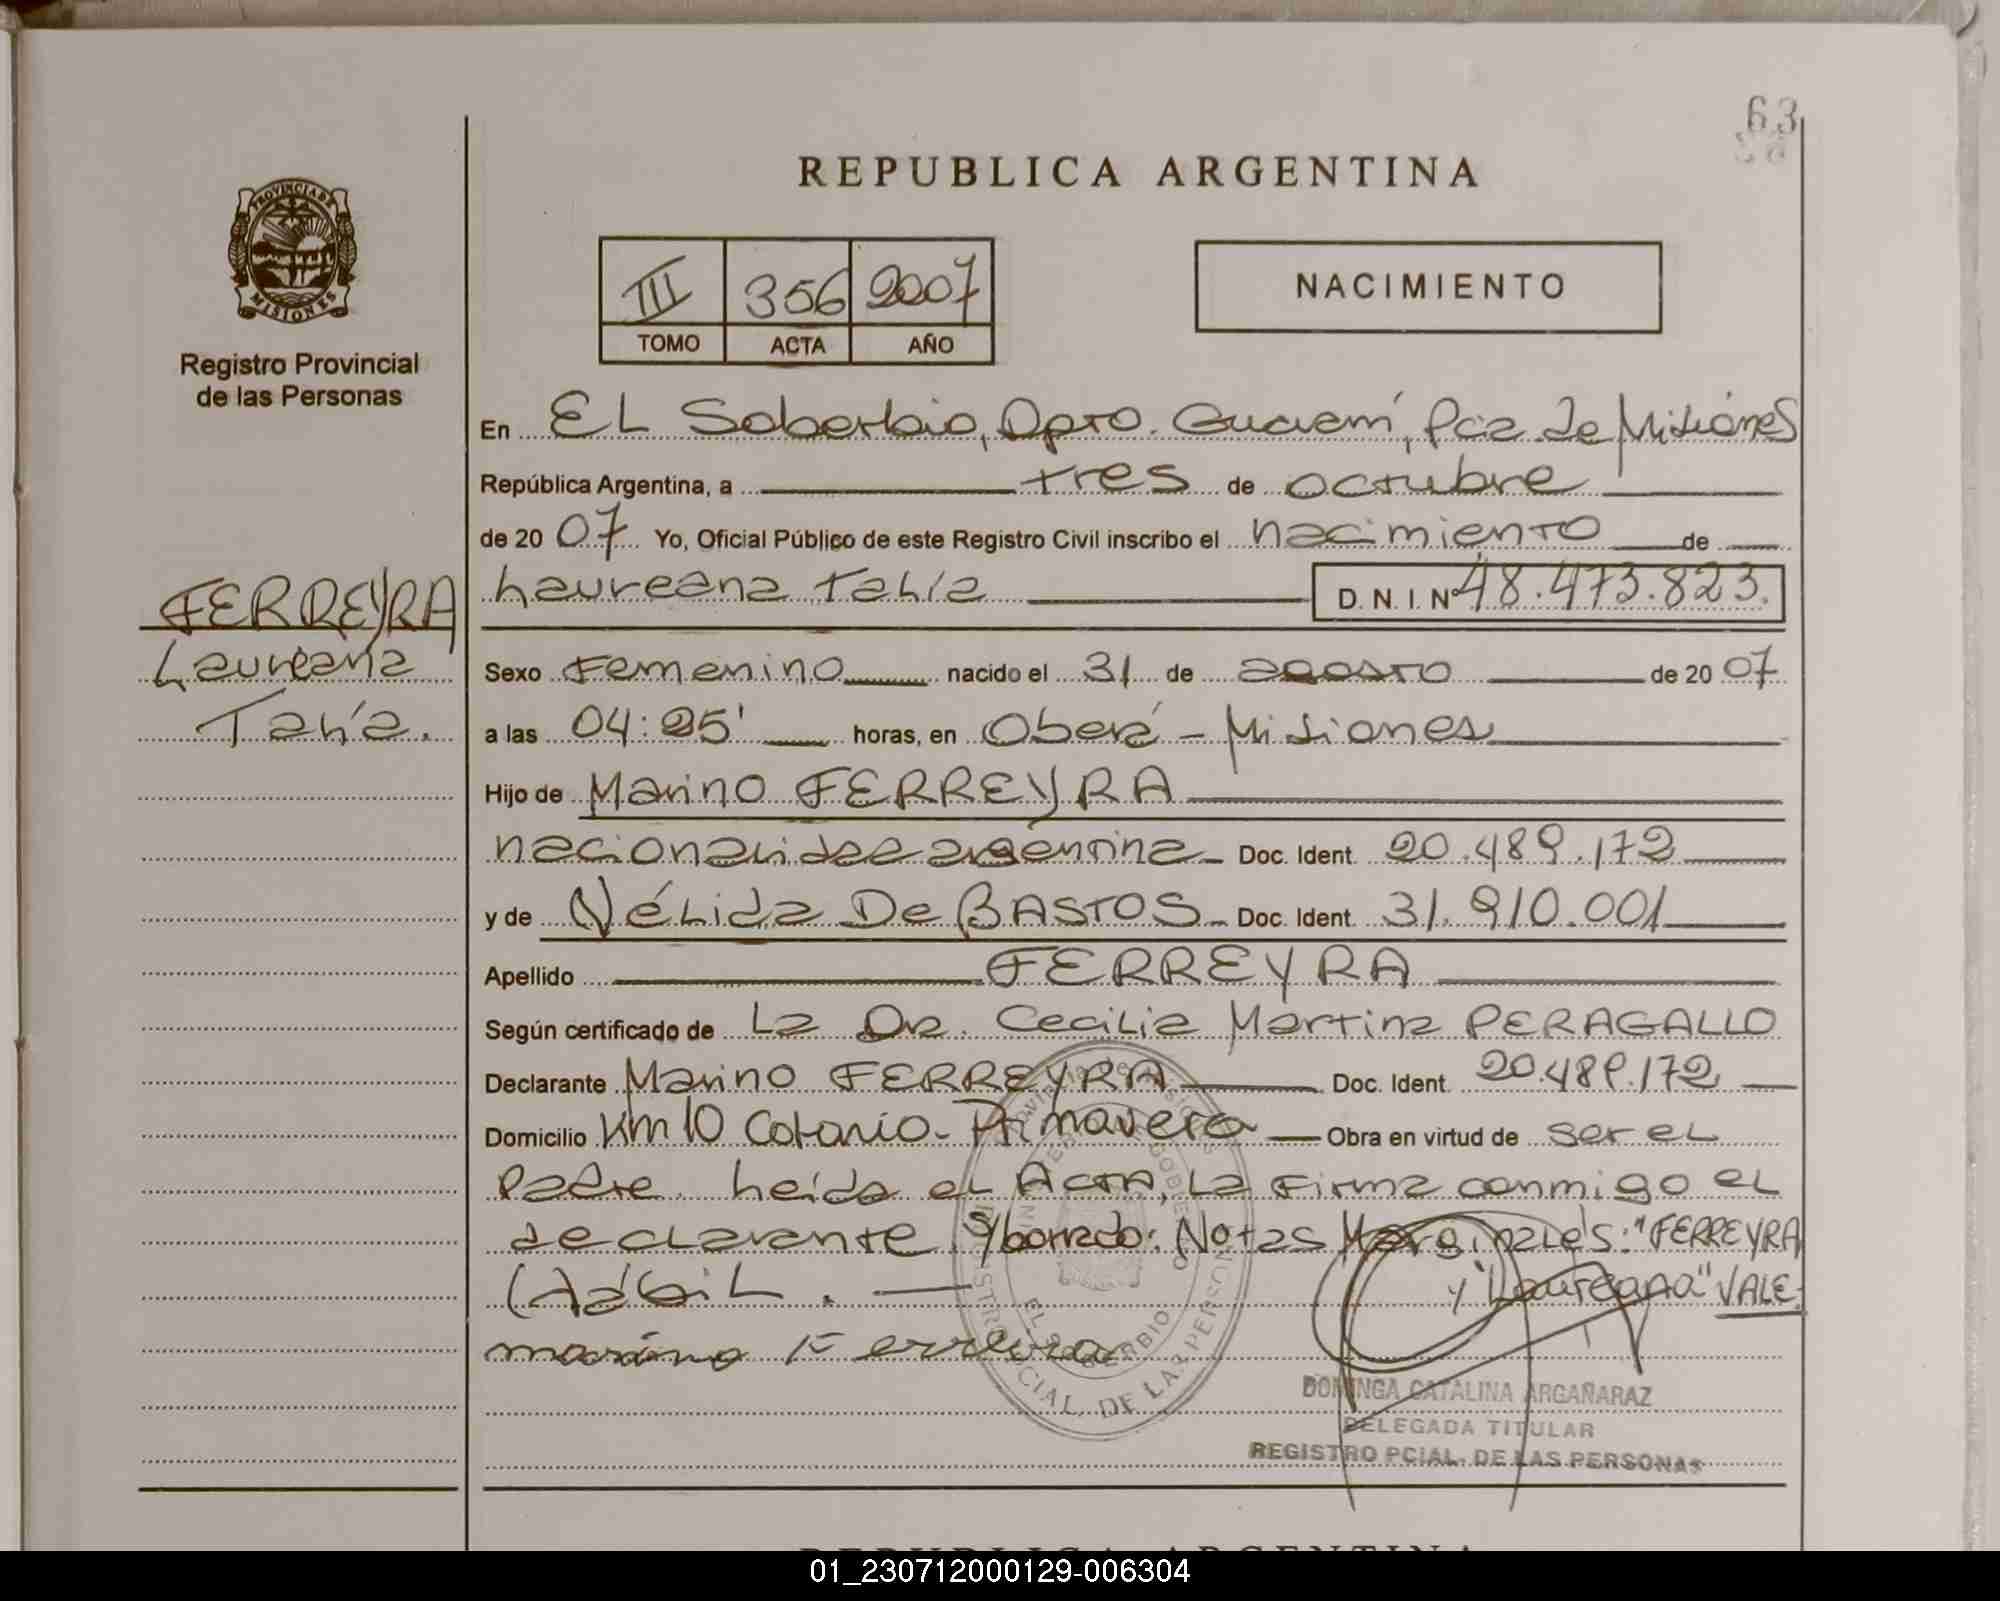 63
REPUBLICA ARGENTINA
PROVINCIA DE
MISIONES
Registro Provincial
de las Personas
III 356 2007
TOMO ACTA AÑO
NACIMIENTO
En EL Soberbio, Dpto. Guaraní, Pcia. de Misiones
República Argentina, a tres de octubre
de 2007 Yo, Oficial Público de este Registro Civil inscribo el nacimiento de
Laureana Tahía D. N. I. Nº 48.473.823.
FERREYRA
Laureana
Tahía.
Sexo Femenino nacido el 31 de agosto de 2007
a las 04:25' horas, en Oberá - Misiones
Hijo de Marino FERREYRA
nacionalidad argentina Doc. Ident. 20.489.172
y de Nélida De BASTOS Doc. Ident. 31.910.001
Apellido FERREYRA
Según certificado de La Dra. Cecilia Martina PERAGALLO
Declarante Marino FERREYRA Doc. Ident. 20.489.172
Domicilio Km 10 Colonia - Primavera Obra en virtud de ser el
Padre. Leída el Acta, la firma conmigo el
declarante. S/borrado: Notas Marginales: "FERREYRA
y "Laureana" VALE.
marino Ferreyra
EL SOBERBIO
DOMINGA CATALINA ARGAÑARAZ
DELEGADA TITULAR
REGISTRO PCIAL. DE LAS PERSONAS
REPUBLICA ARGENTINA
01_230712000129-006304